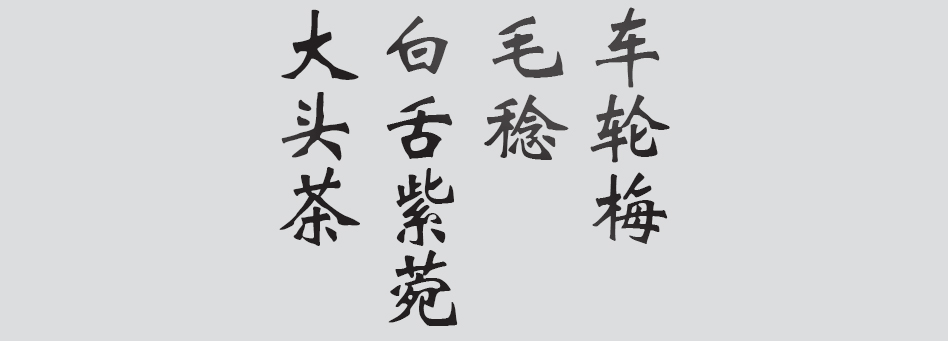 车轮梅
毛稔
白舌紫菀
大头茶